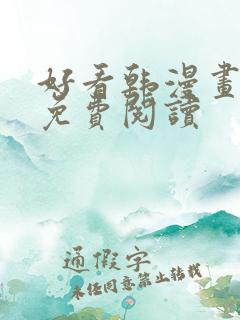 好看韩漫畫
免費閱讀
通假字
未经同意禁止转载